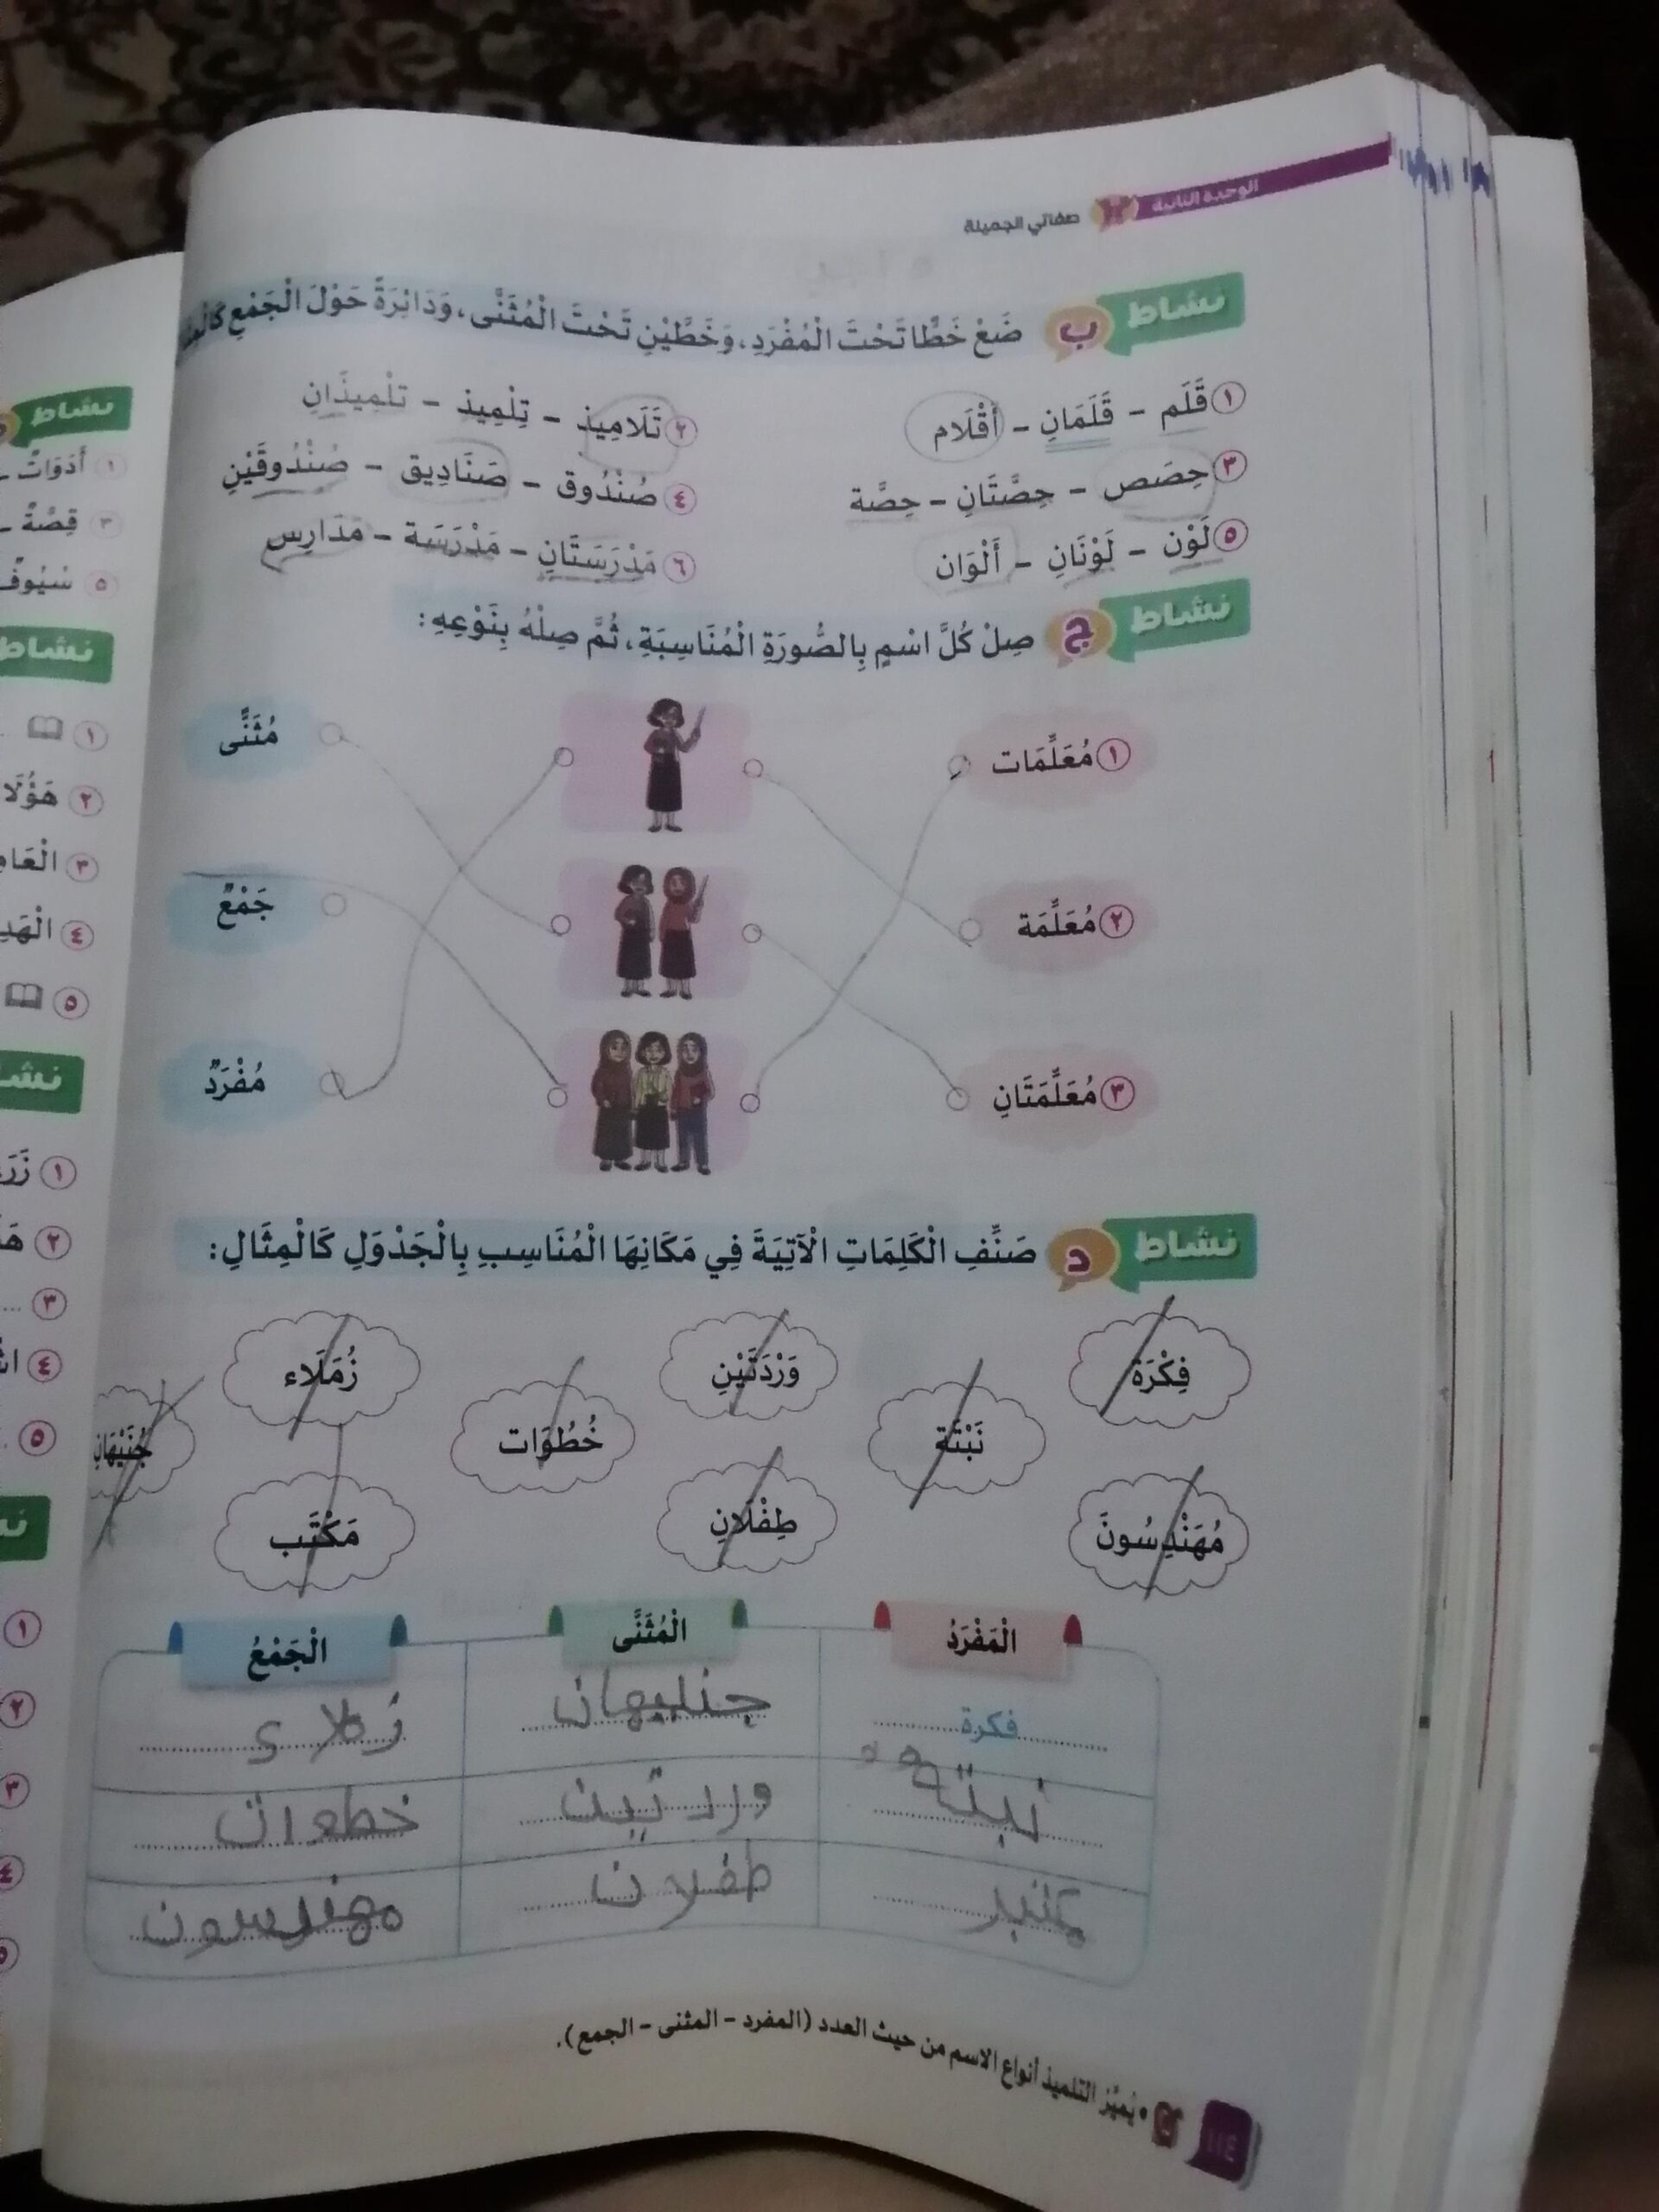 الوحدة الثانية صفاتي الجميلة
نشاط ب ضَعْ خَطًّا تَحْتَ الْمُفْرَدِ، وَخَطَّيْنِ تَحْتَ الْمُثَنَّى، وَدَائِرَةً حَوْلَ الْجَمْعِ
١ قَلَم - قَلَمَانِ - أَقْلَام
٢ تَلَامِيذ - تِلْمِيذ - تِلْمِيذَانِ
٣ حِصَص - حِصَّتَانِ - حِصَّة
٤ صُنْدُوق - صَنَادِيق - صُنْدُوقَيْنِ
٥ لَوْن - لَوْنَانِ - أَلْوَان
٦ مَدْرَسَتَانِ - مَدْرَسَة - مَدَارِس
نشاط ج صِلْ كُلَّ اسْمٍ بِالصُّورَةِ الْمُنَاسِبَةِ، ثُمَّ صِلْهُ بِنَوْعِهِ:
١ مُعَلِّمَات
مُثَنًّى
٢ مُعَلِّمَة
جَمْعٌ
٣ مُعَلِّمَتَانِ
مُفْرَدٌ
نشاط د صَنِّفِ الْكَلِمَاتِ الْآتِيَةَ فِي مَكَانِهَا الْمُنَاسِبِ بِالْجَدْوَلِ كَالْمِثَالِ:
فِكْرَة وَرْدَتَيْنِ زُمَلَاء
نَبْتَة خُطُوَات جُنَيْهَانِ
مُهَنْدِسُونَ طِفْلَانِ مَكْتَب
الْمُفْرَدُ الْمُثَنَّى الْجَمْعُ
فكرة جنيهان زملاء
نبتة وردتين خطوات
طفلان مهندسون
• يُميّز التلميذ أنواع الاسم من حيث العدد (المفرد - المثنى - الجمع).
١١٤
نشاط
١ أَدَوَاتٌ
٣ قِصَّةٌ
٥ سُيُوفٌ
نشاط
١
٢ هَؤُلَا
٣ الْعَامِ
٤ الْهَدِ
٥
١ زَرَ
٢
٣
٤
٥
١
٢
٣
٤
٥